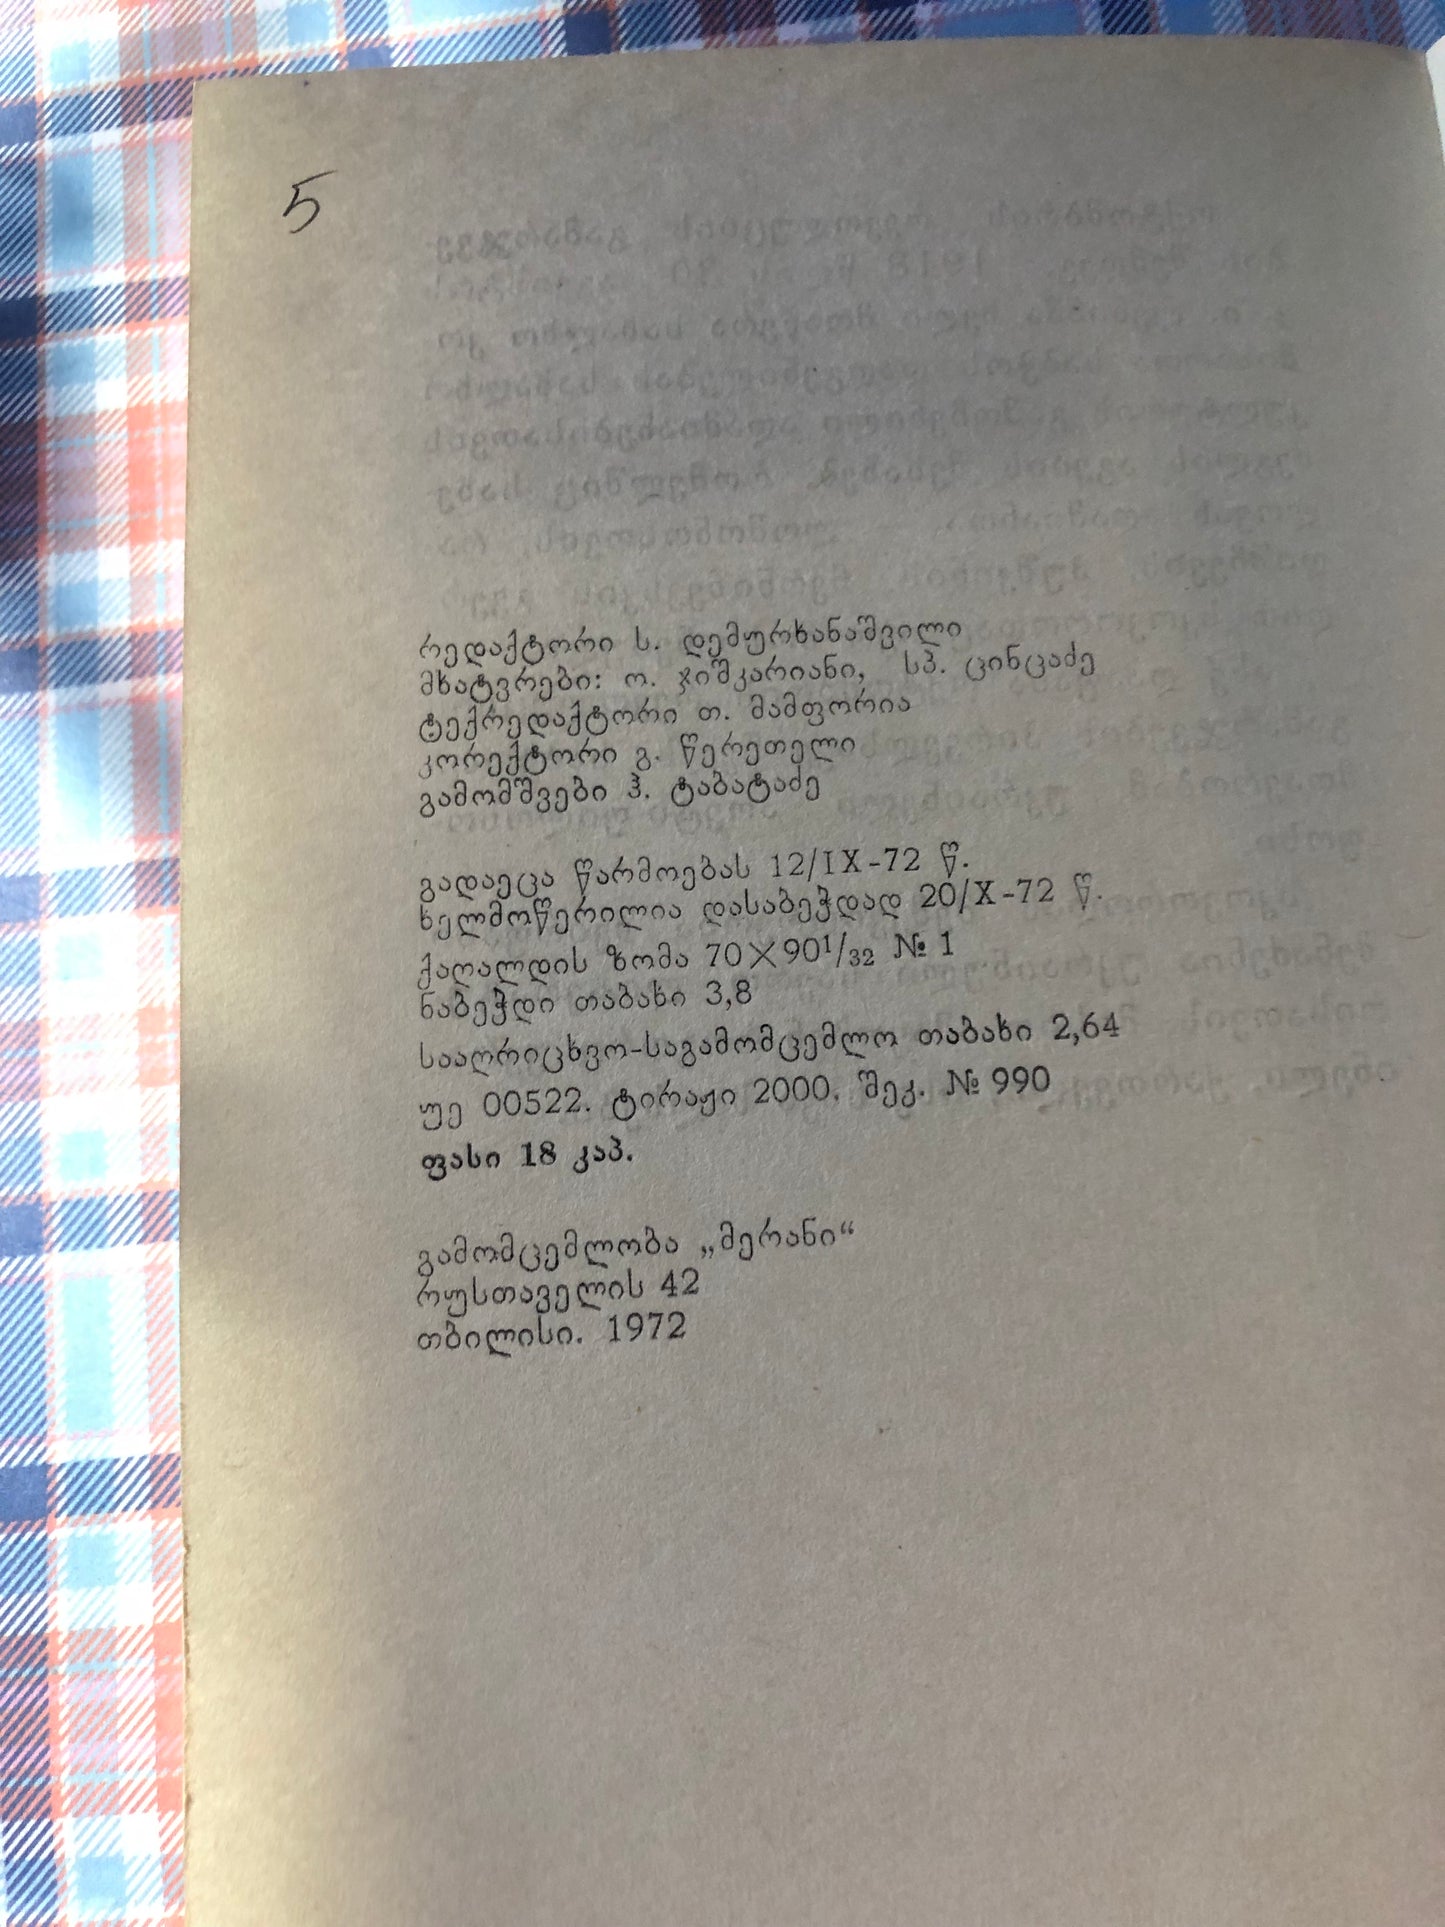 5
რედაქტორი ს. დემურხანაშვილი
მხატვრები: ო. ჯიშკარიანი, სპ. ცინცაძე
ტექრედაქტორი თ. მამფორია
კორექტორი გ. წერეთელი
გამომშვები ჰ. ტაბატაძე
გადაეცა წარმოებას 12/IX-72 წ.
ხელმოწერილია დასაბეჭდად 20/X-72 წ.
ქაღალდის ზომა 70×90¹/₃₂ № 1
ნაბეჭდი თაბახი 3,8
სააღრიცხვო-საგამომცემლო თაბახი 2,64
უე 00522. ტირაჟი 2000. შეკ. № 990
ფასი 18 კაპ.
გამომცემლობა „მერანი“
რუსთაველის 42
თბილისი. 1972